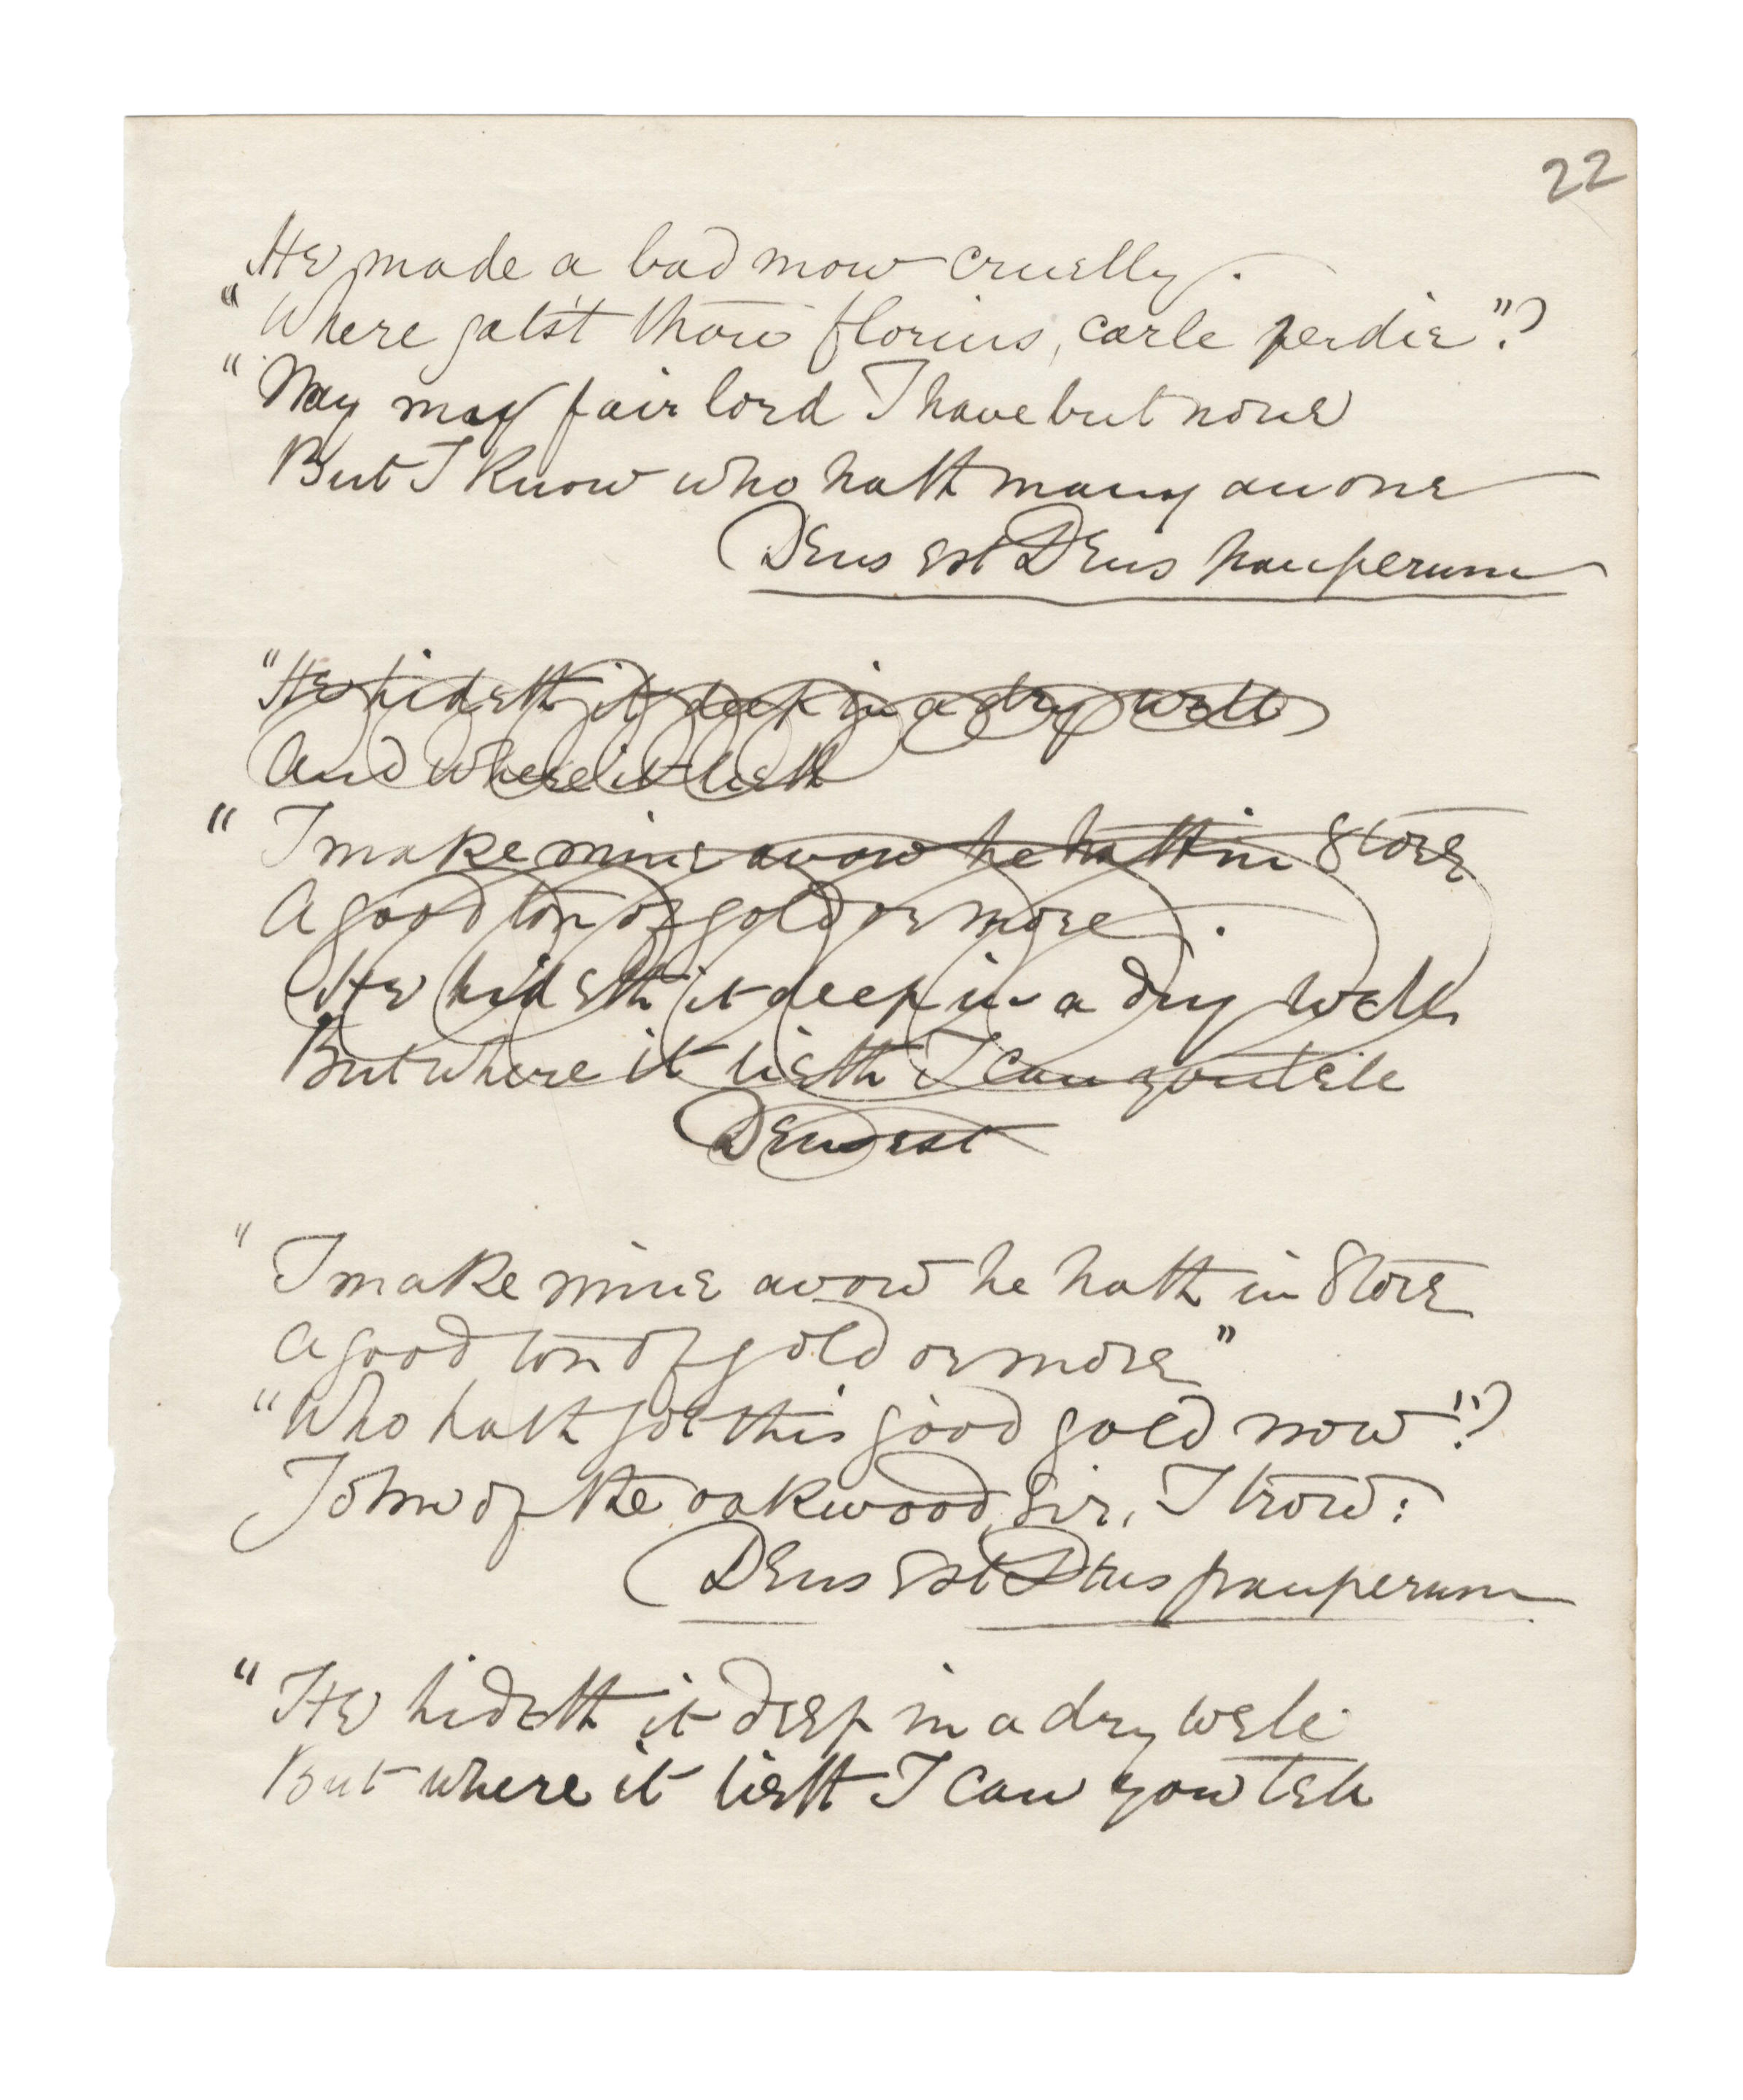 22
He made a bad mow cruelly.
"Where gatst thou florins, carle perdie"?
"Nay may fair lord I have but none
But I know who hath many an one
Deus est Deus pauperum
"He hideth it deep in a dry well
And where it lieth
"I make mine avow he hath in store
A good ton of gold or more.
He hideth it deep in a dry well
But where it lieth I can you tell
Deus est
"I make mine avow he hath in store
A good ton of gold or more"
"Who hath got this good gold now"?
John of the oakwood, Sir, I trow:
Deus est Deus pauperum
"He hideth it deep in a dry well
But where it lieth I can you tell